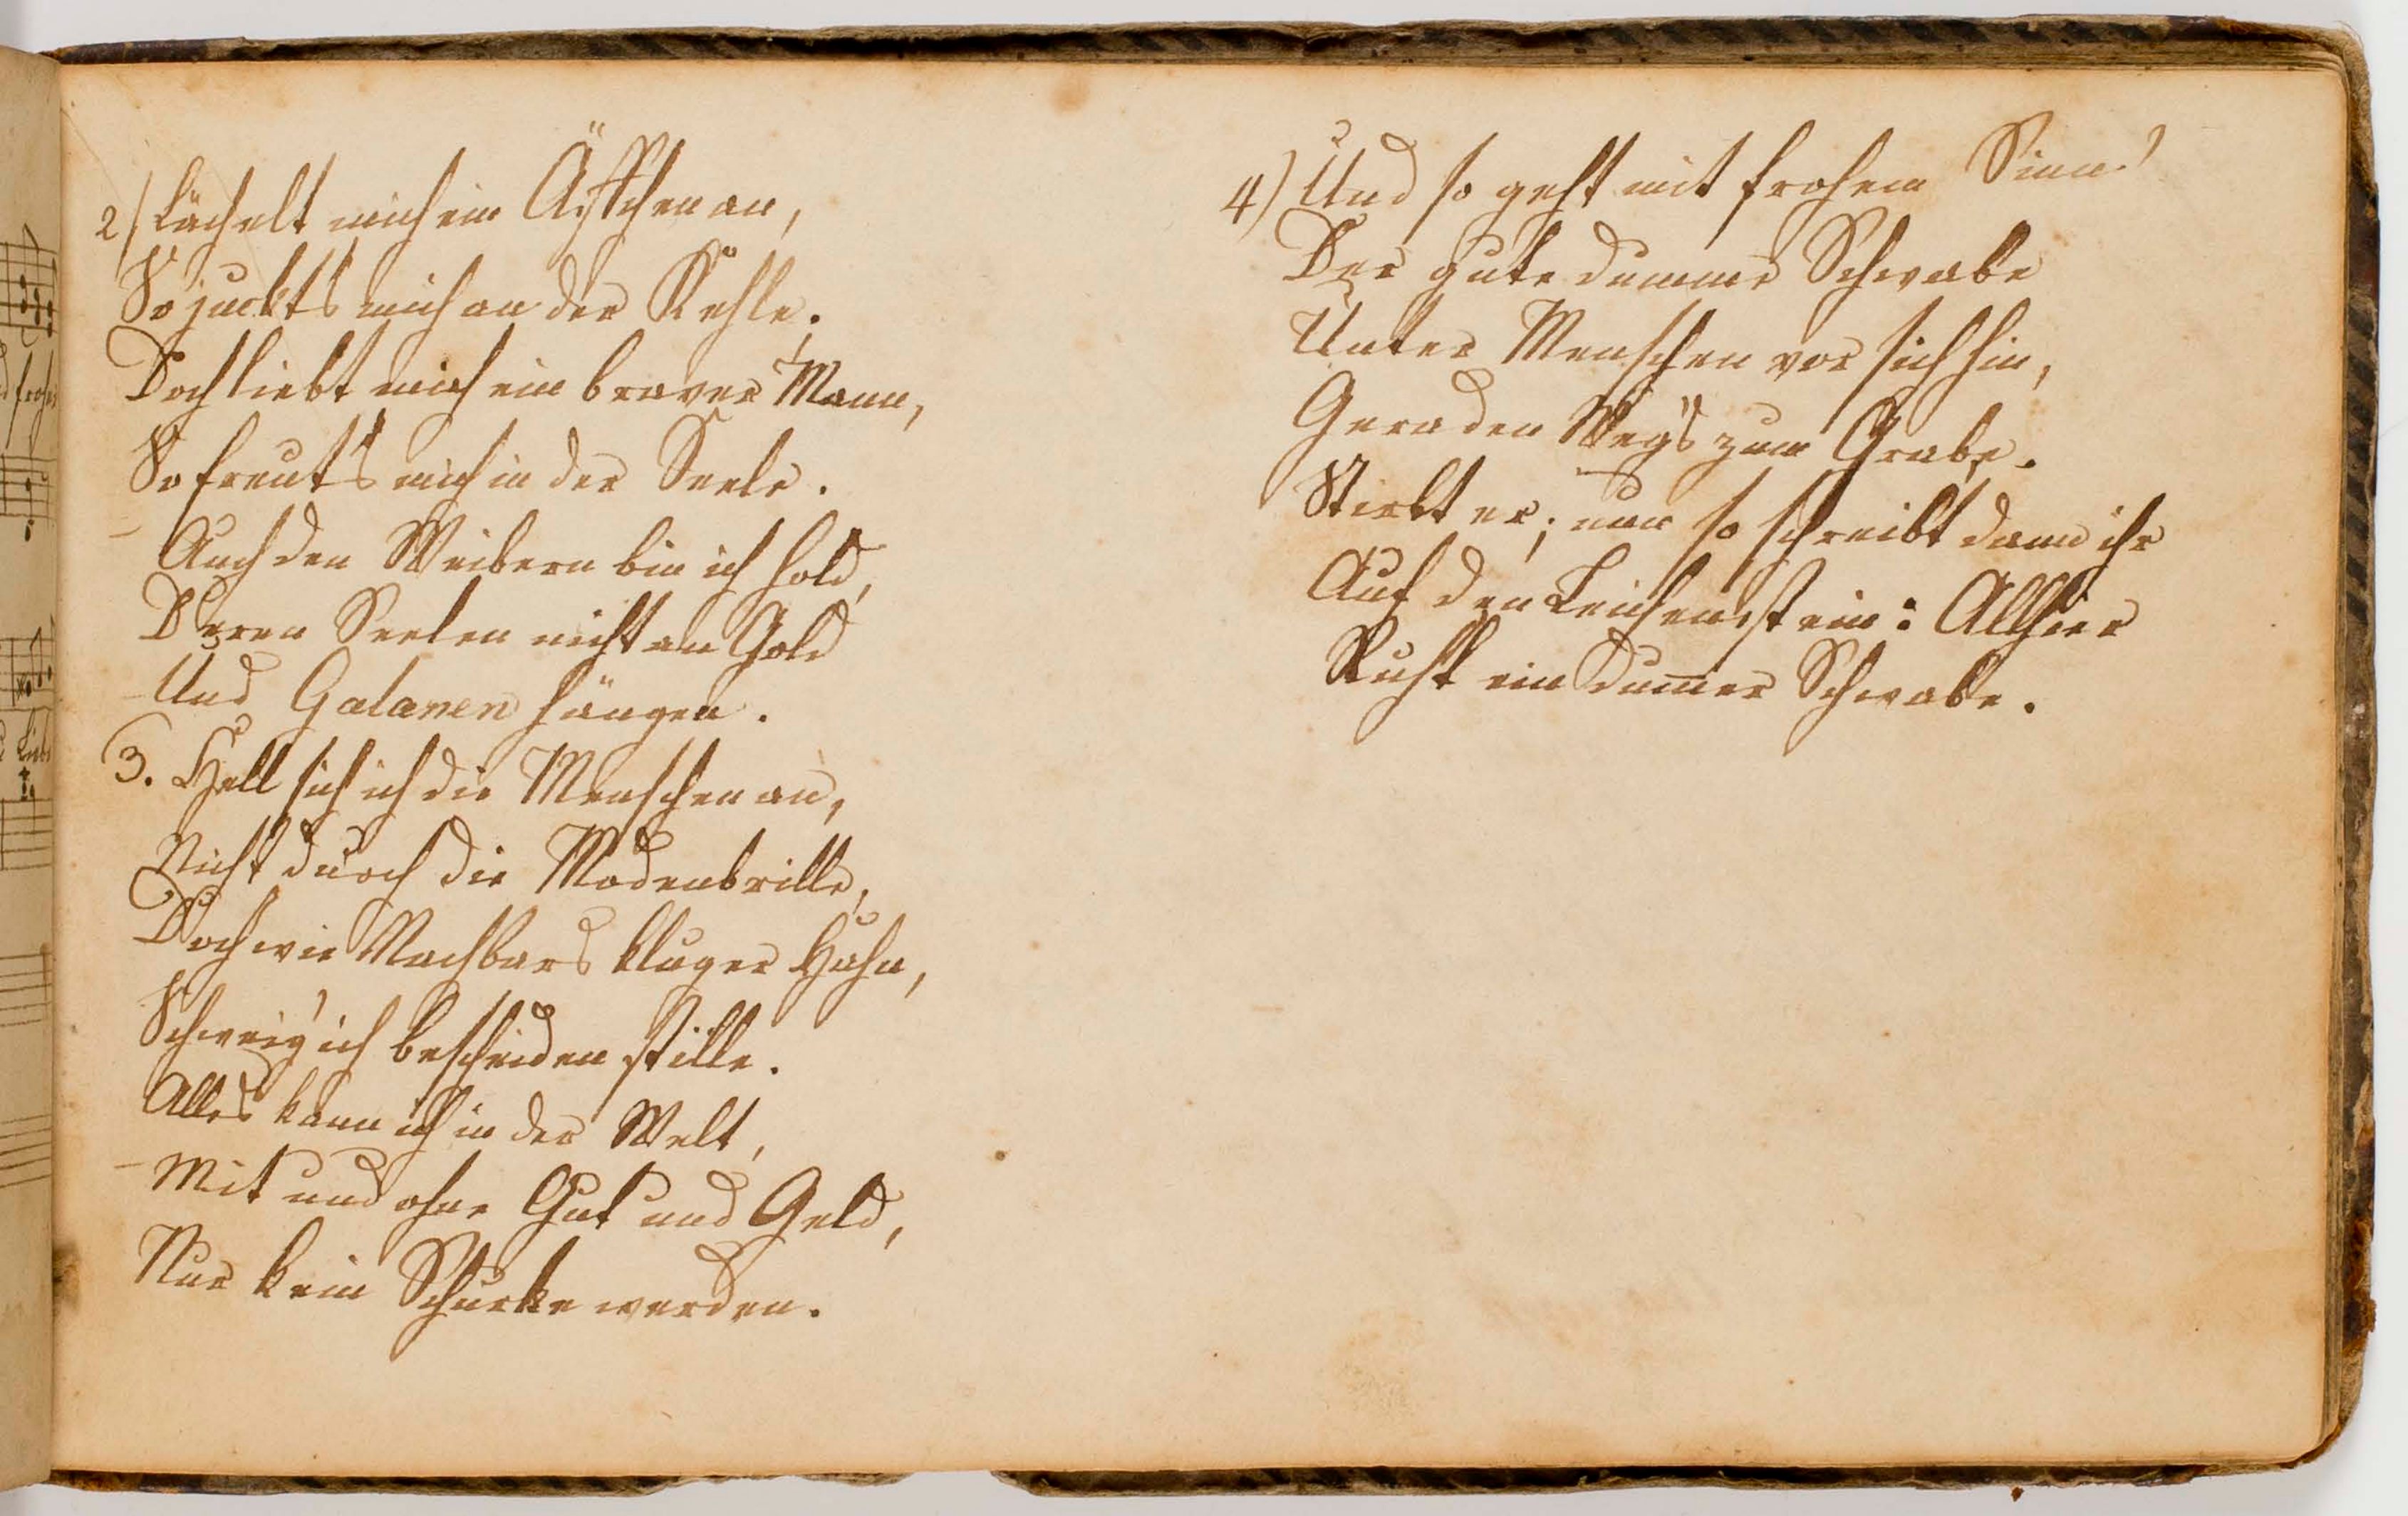 2) Lächelt mich ein Äffchen an,
So juckt's mich an der Kehle.
Doch liebt mich ein braver Mann,
So freut's mich in der Seele.
Auch den Weibern bin ich hold,
Deren Seelen nicht an Gold
Und Galanen hängen.
3. Hell sich ich die Menschen an,
Nicht durch die Modenbrille,
Doch wie Nachbars kluger Hahn,
Schweig' ich bescheiden stille.
Alles kann ich in der Welt,
Mit und ohne Gut und Geld,
Nur kein Schurke werden.
4) Und so geht mit frohem Sinn
Der gute dumme Schwabe
Unter Menschen vor sich hin,
Geraden Weg's zum Grabe.
Stirbt er; nun so schreibt dann ihr
Auf den Leichenstein: Allhier
Ruht ein dum̅er Schwabe.